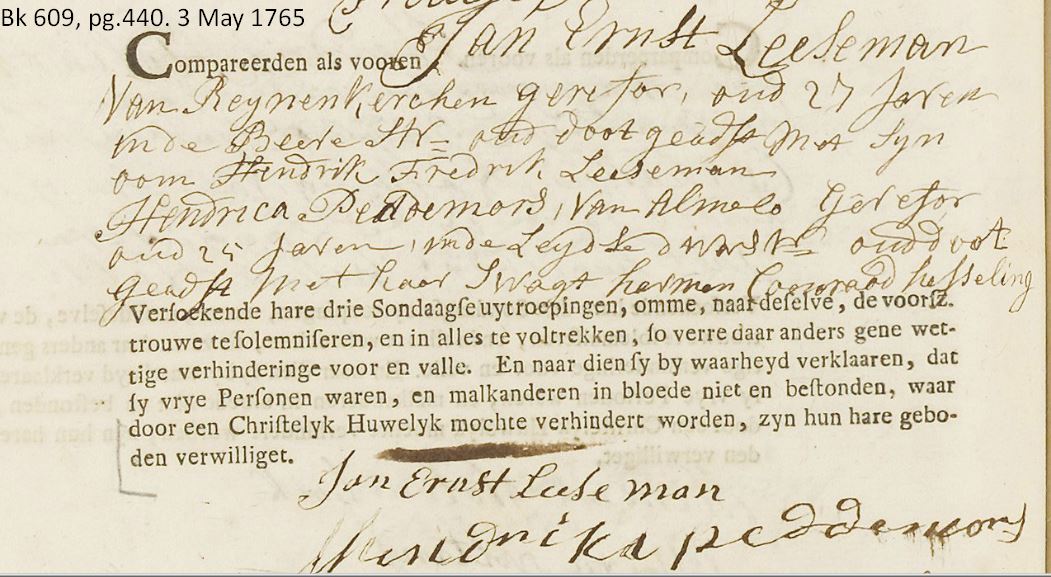 Bk 609, pg.440. 3 May 1765
Compareerden als vooren Jan Ernst Leeseman
Van Reynenkerchen gerefor, oud 27 Jaren
inde Beere Str= oud doot geadst Met Syn
oom Hendrik Fredrik Leeseman
Hendrica Peddemors, Van Almelo Gerefor
oud 25 Jaren, inde Leydse dwarstr= oud doot
geadst Met haar Swagt harmen Coenraad hesseling
Verſoekende hare drie Sondaagſe uytroepingen, omme, naar deſelve, de voorſz.
trouwe te ſolemniſeren, en in alles te voltrekken, ſo verre daar anders gene wet-
tige verhinderinge voor en valle. En naar dien ſy by waarheyd verklaaren, dat
ſy vrye Perſonen waren, en malkanderen in bloede niet en beſtonden, waar
door een Chriſtelyk Huwelyk mochte verhindert worden, zyn hun hare gebo-
den verwilliget.
Jan Ernst Leeseman
Hendrika peddemors